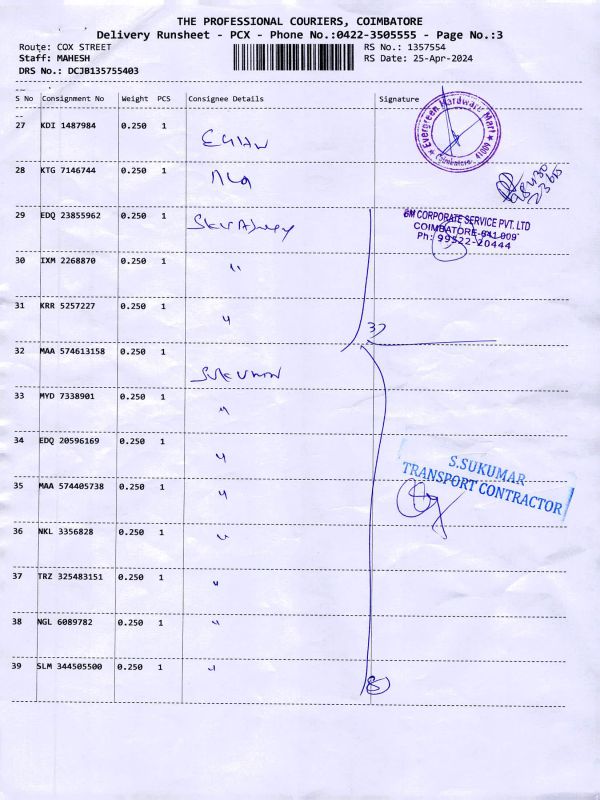 THE PROFESSIONAL COURIERS, COIMBATORE
Delivery Runsheet - PCX - Phone No.:0422-3505555 - Page No.:3
Route: COX STREET RS No.: 1357554
Staff: MAHESH RS Date: 25-Apr-2024
DRS No.: DCJB135755403
S No Consignment No Weight PCS Consignee Details Signature
27 KDI 1487984 0.250 1
Evergreen Hardware Mart
Coimbatore
28 KTG 7146744 0.250 1
29 EDQ 23855962 0.250 1
CORPORATE SERVICE PVT. LTD
COIMBATORE-641 009
Ph: 99522-20444
30 IXM 2268870 0.250 1 "
31 KRR 5257227 0.250 1 "
3)
32 MAA 574613158 0.250 1
33 MYD 7338901 0.250 1 "
34 EDQ 20596169 0.250 1 "
S.SUKUMAR
TRANSPORT CONTRACTOR
35 MAA 574405738 0.250 1 "
36 NKL 3356828 0.250 1 "
37 TRZ 325483151 0.250 1 "
38 NGL 6089782 0.250 1 "
39 SLM 344505500 0.250 1 "
8)